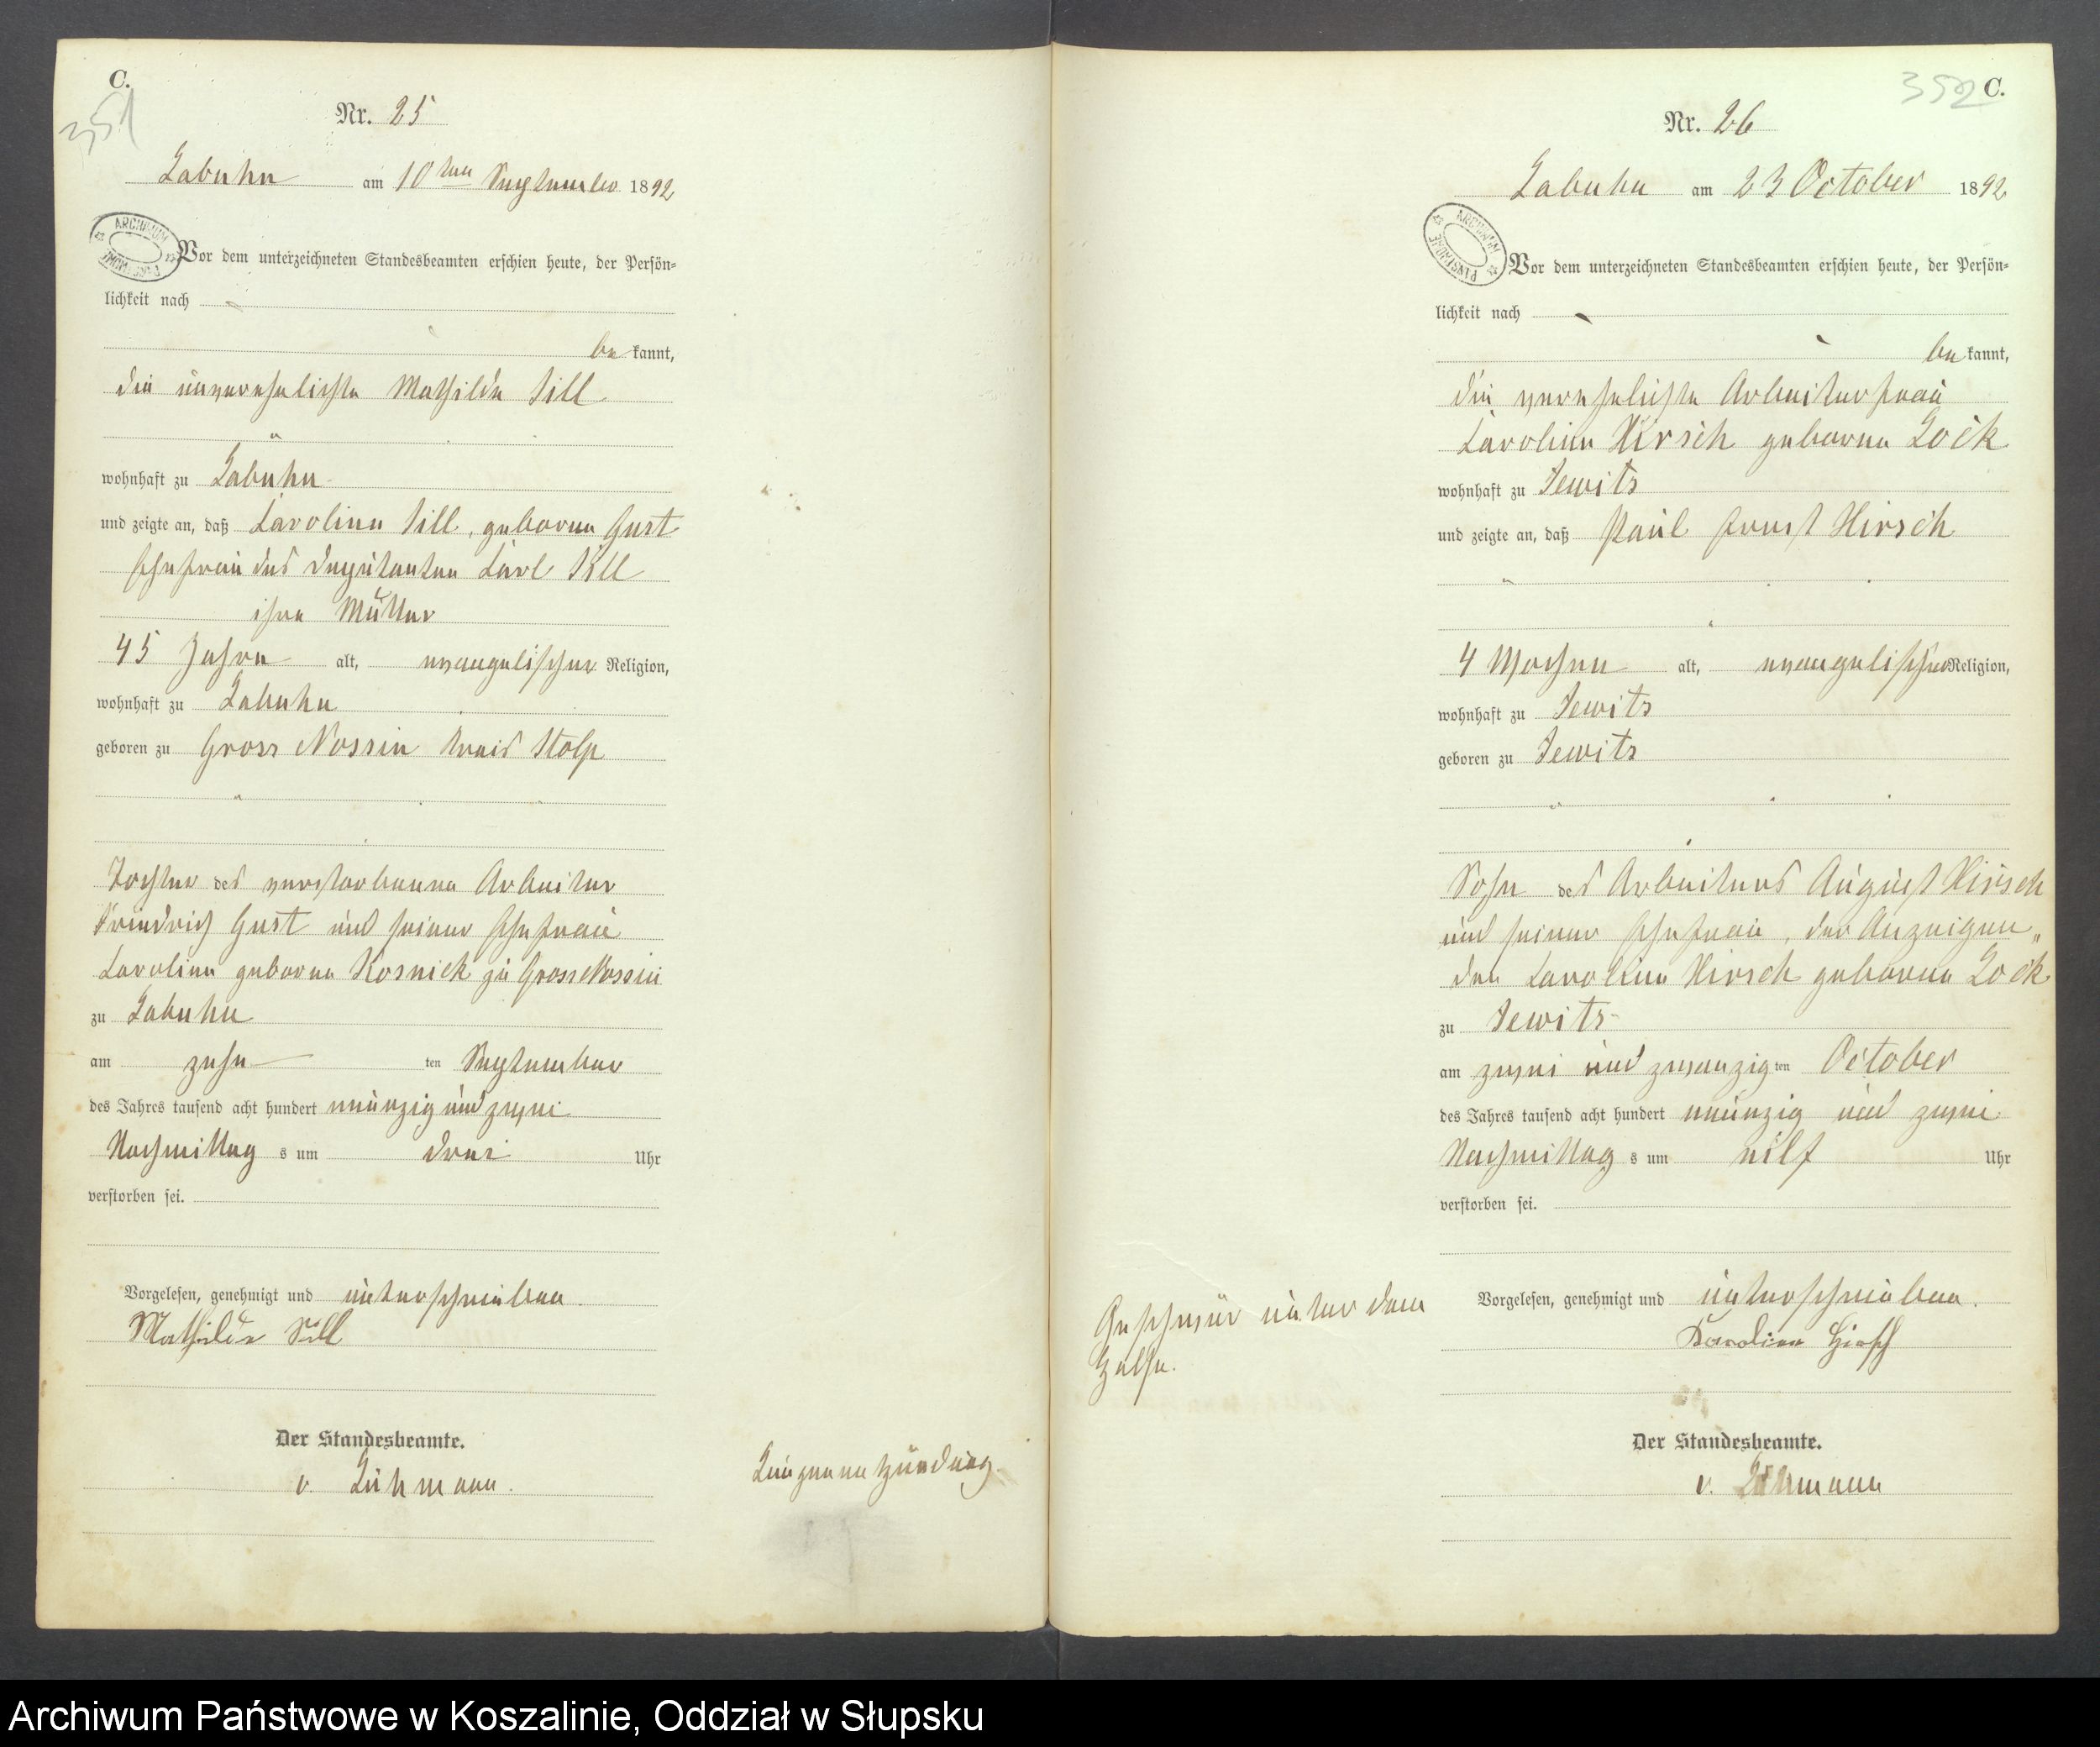 C.
351
Nr. 25
Labuhn am 10ten September 1892
ARCHIWUM
Vor dem unterzeichneten Standesbeamten erschien heute, der Persön=
lichkeit nach
be kannt,
die unverehelichte Mathilde Sill
wohnhaft zu Labuhn
und zeigte an, daß Caroline Sill, geborne Gust
Ehefrau des Deputanten Carl Sill
ihre Mutter
45 Jahre alt, evangelischer Religion,
wohnhaft zu Labuhn
geboren zu Gross Nossin Kreis Stolp
Tochter des verstorbenen Arbeiter
Friedrich Gust und seiner Ehefrau
Caroline geborne Kosnick zu Gross Nossin
zu Labuhn
am zehn ten September
des Jahres tausend acht hundert neunzig und zwei
Nachmittag s um drei Uhr
verstorben sei.
Vorgelesen, genehmigt und unterschrieben.
Mathilde Sill
Der Standesbeamte.
v. Lühmann.
Lungenentzündung.
352 C.
Nr. 26
Labuhn am 23 October 1892
ARCHIWUM PAŃSTWOWE
Vor dem unterzeichneten Standesbeamten erschien heute, der Persön=
lichkeit nach
be kannt,
die verehelichte Arbeiterfrau
Caroline Hirsch geborne Lock
wohnhaft zu Jewitz
und zeigte an, daß Paul Ernst Hirsch
4 Wochen alt, evangelischer Religion,
wohnhaft zu Jewitz
geboren zu Jewitz
Sohn des Arbeiters August Hirsch
und seiner Ehefrau, der Anzeigen„
den Caroline Hirsch geborne Lock
zu Jewitz
am zwei und zwanzig ten October
des Jahres tausend acht hundert neunzig und zwei
Nachmittag s um eilf Uhr
verstorben sei.
Vorgelesen, genehmigt und unterschrieben.
Karoline Hirsch
Geschwür unter dem
Halse.
Der Standesbeamte.
v. Lühmann
Archiwum Państwowe w Koszalinie, Oddział w Słupsku